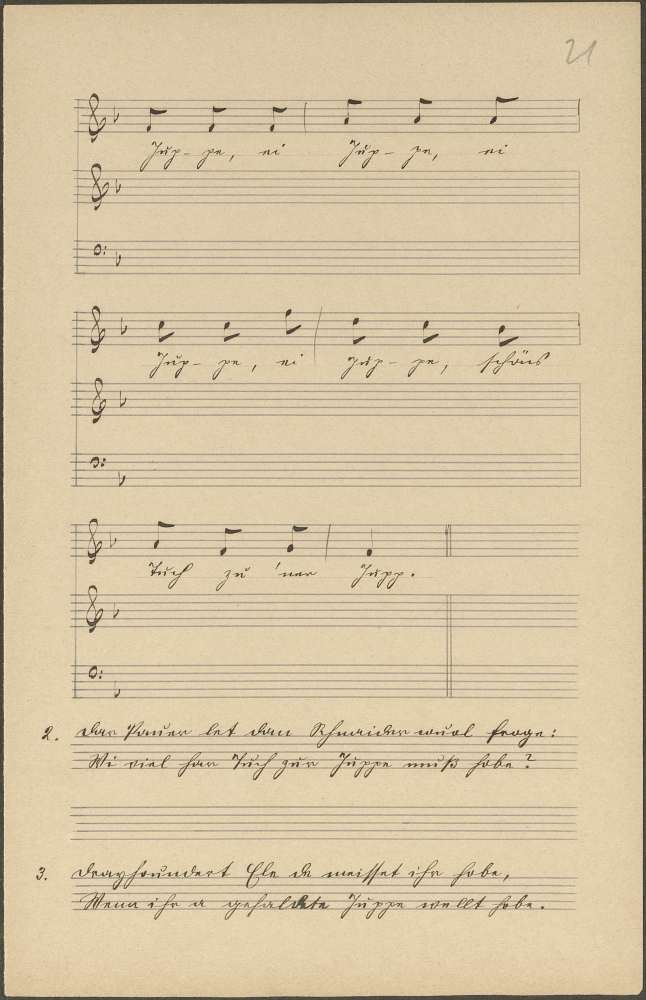 21
Jüp- pe, ei Jüp- pe, ei
Jüp- pe, ei Jüp- pe, schöns
Tuch zu 'ner Jupp.
2. Der Pauer let dan Schneider wuol froge:
Wi viel har Tuch zur Juppe muß hobe?
3. Drayhoundert Ele da meisset ihr hobe,
Wenn ihr a gehaldete Juppe wellt hobe.